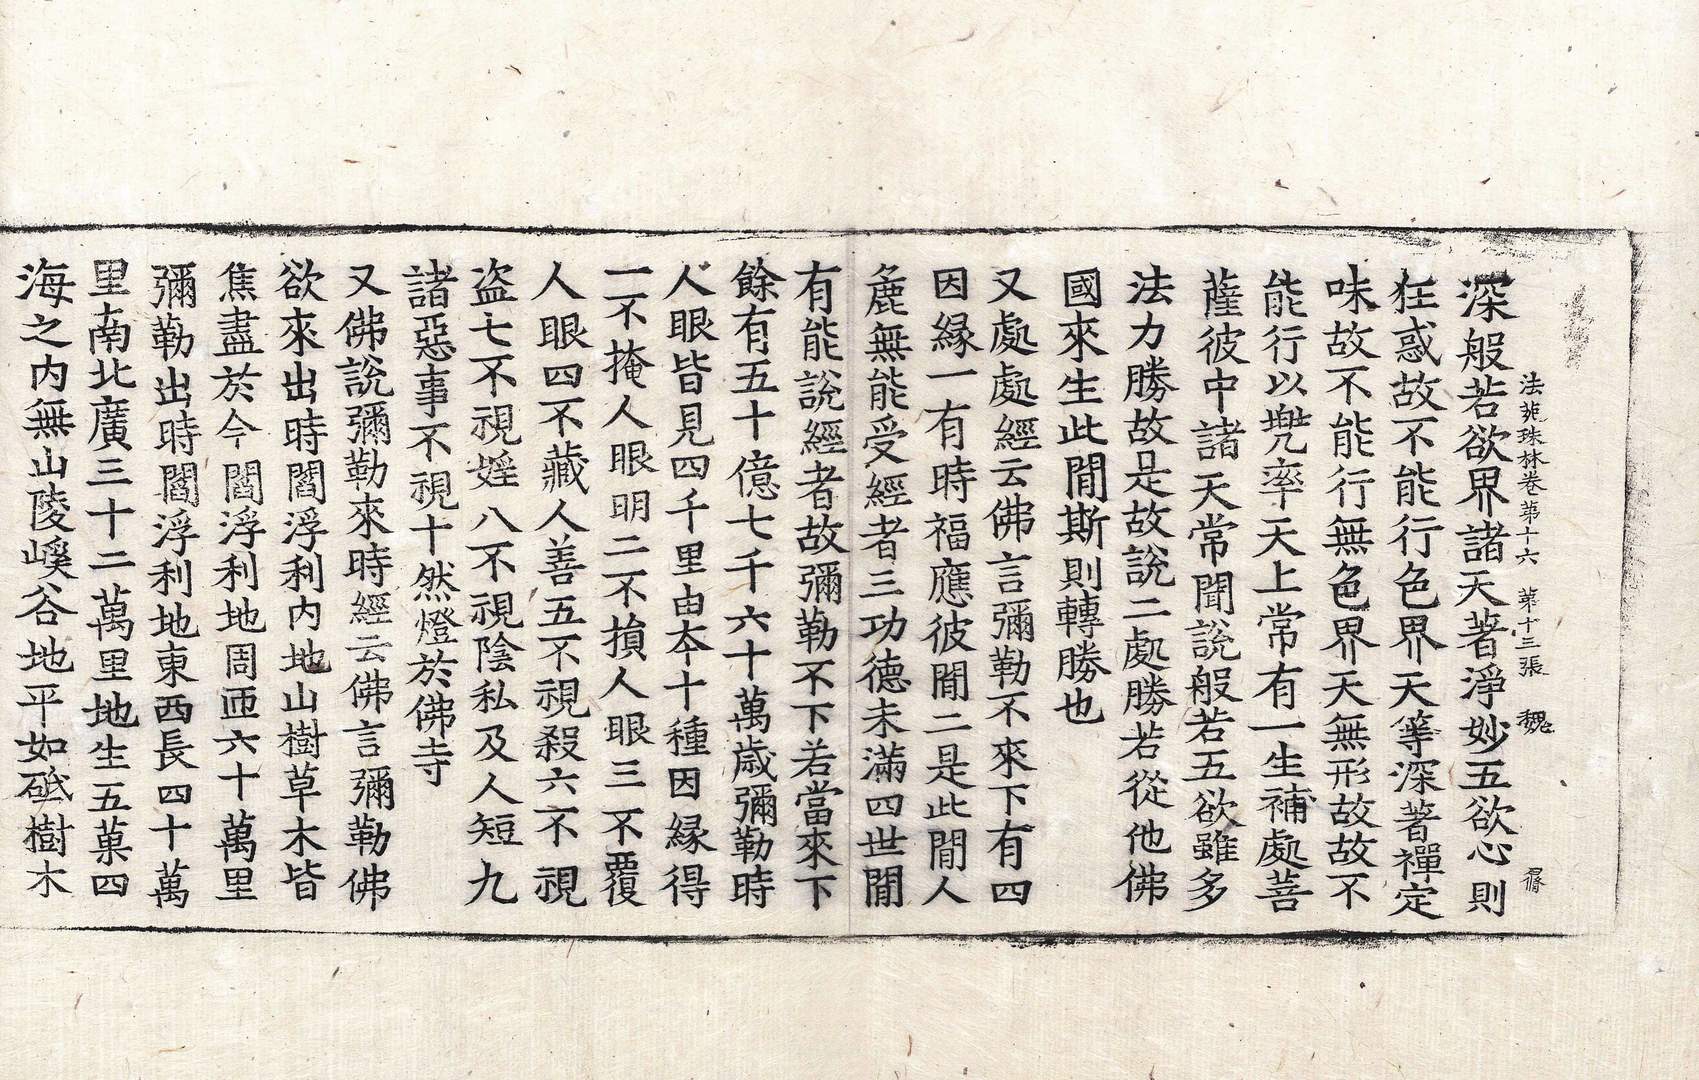 法苑珠林卷第十六　第十三張　魏
深般若欲界諸天著淨妙五欲心則
狂惑故不能行色界天等深著禪定
味故不能行無色界天無形故故不
能行以兠率天上常有一生補處菩
薩彼中諸天常聞說般若五欲雖多
法力勝故是故說二處勝若從他佛
國來生此閒斯則轉勝也
又處處經云佛言彌勒不來下有四
因緣一有時福應彼閒二是此閒人
麁無能受經者三功德未滿四世閒
有能說經者故彌勒不下若當來下
餘有五十億七千六十萬歲彌勒時
人眼皆見四千里由本十種因緣得
一不掩人眼明二不損人眼三不覆
人眼四不藏人善五不視殺六不視
盜七不視婬八不視陰私及人短九
諸惡事不視十然燈於佛寺
又佛說彌勒來時經云佛言彌勒佛
欲來出時閻浮利內地山樹草木皆
焦盡於今閻浮利地周匝六十萬里
彌勒出時閻浮利地東西長四十萬
里南北廣三十二萬里地生五菓四
海之內無山陵嵠谷地平如砥樹木